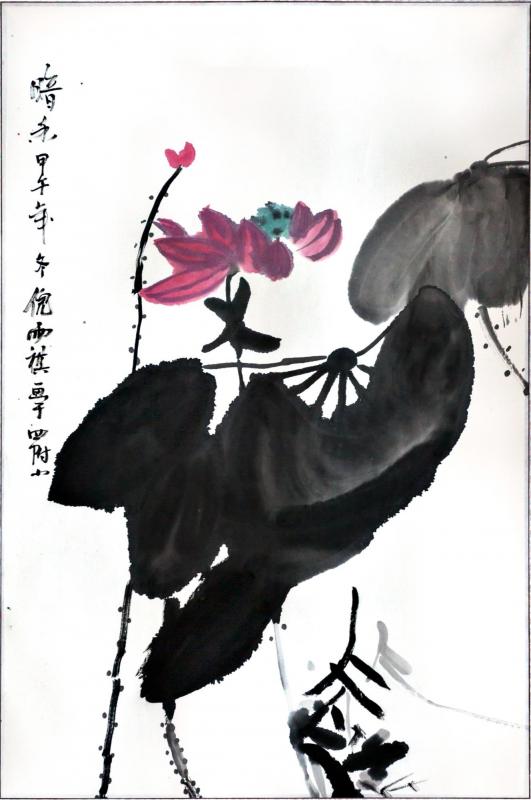 暗香甲午年冬倪雨祺画于西附小